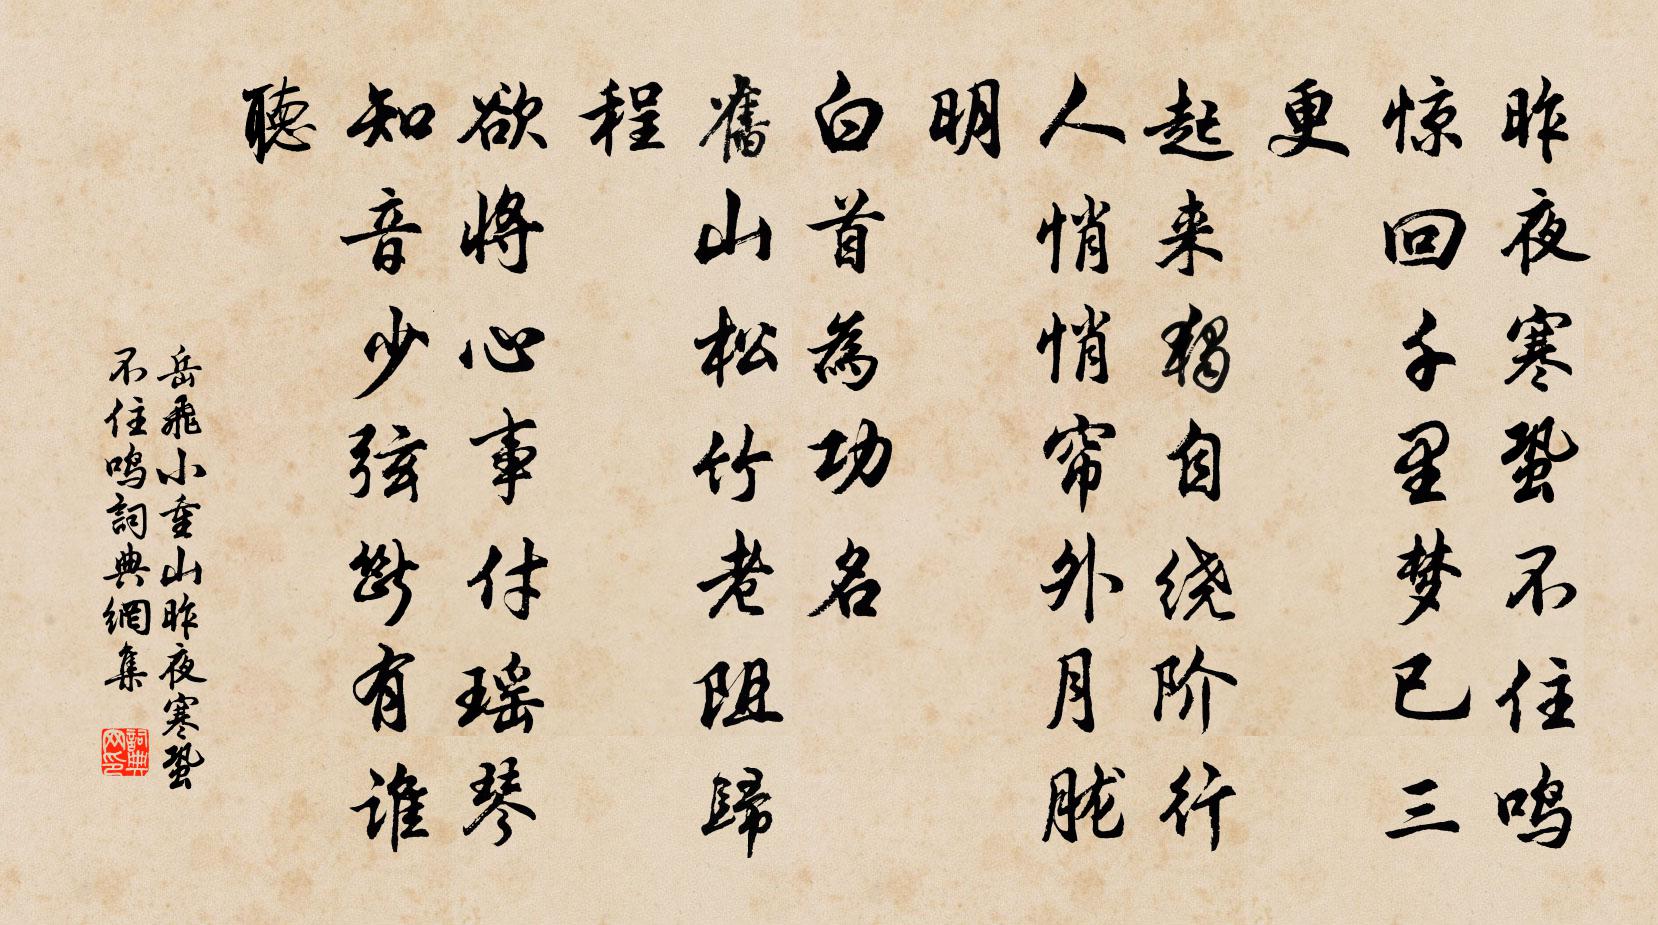 昨夜寒蛩不住鸣
惊回千里梦已三
更
起来独自绕阶行
人悄悄帘外月胧
明
白首為功名
舊山松竹老阻歸
程
欲将心事付瑶琴
知音少弦斷有谁
聽
岳飛小重山昨夜寒蛩
不住鸣詞典網集
詞典
网印